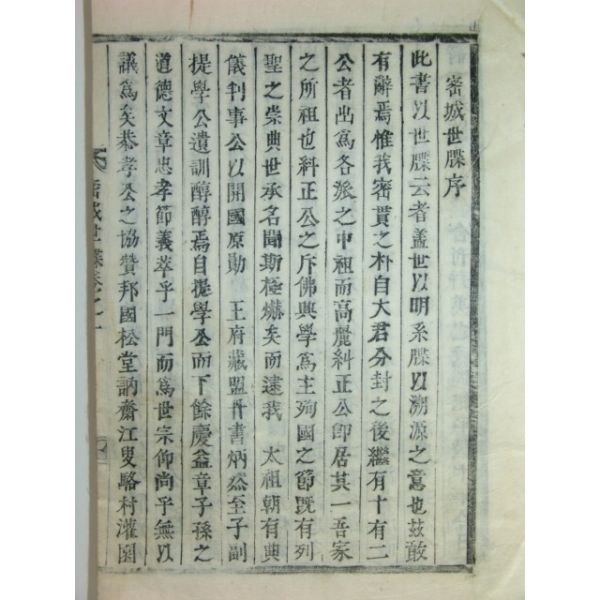 密城世牒序
此書以世牒云者盖世以明系牒以溯源之意也玆敢
有辭焉惟我密貫之朴自大君分封之後繼有十有二
公者出爲各派之中祖而高麗糾正公卽居其一吾家
之所祖也糾正公之斥佛興學爲主殉國之節旣有列
聖之崇典世承名閥斯極爀矣而逮我 太祖朝有典
儀判事公以開國原勳 王府藏盟丹書炳然至子副
提學公遺訓醇醇焉自提學公而下餘慶益章子孫之
道德文章忠孝節義萃乎一門而爲世宗仰尚乎無以
議爲矣恭孝公之協贊邦國松堂訥齋江叟駱村灌園
密城世牒卷之一